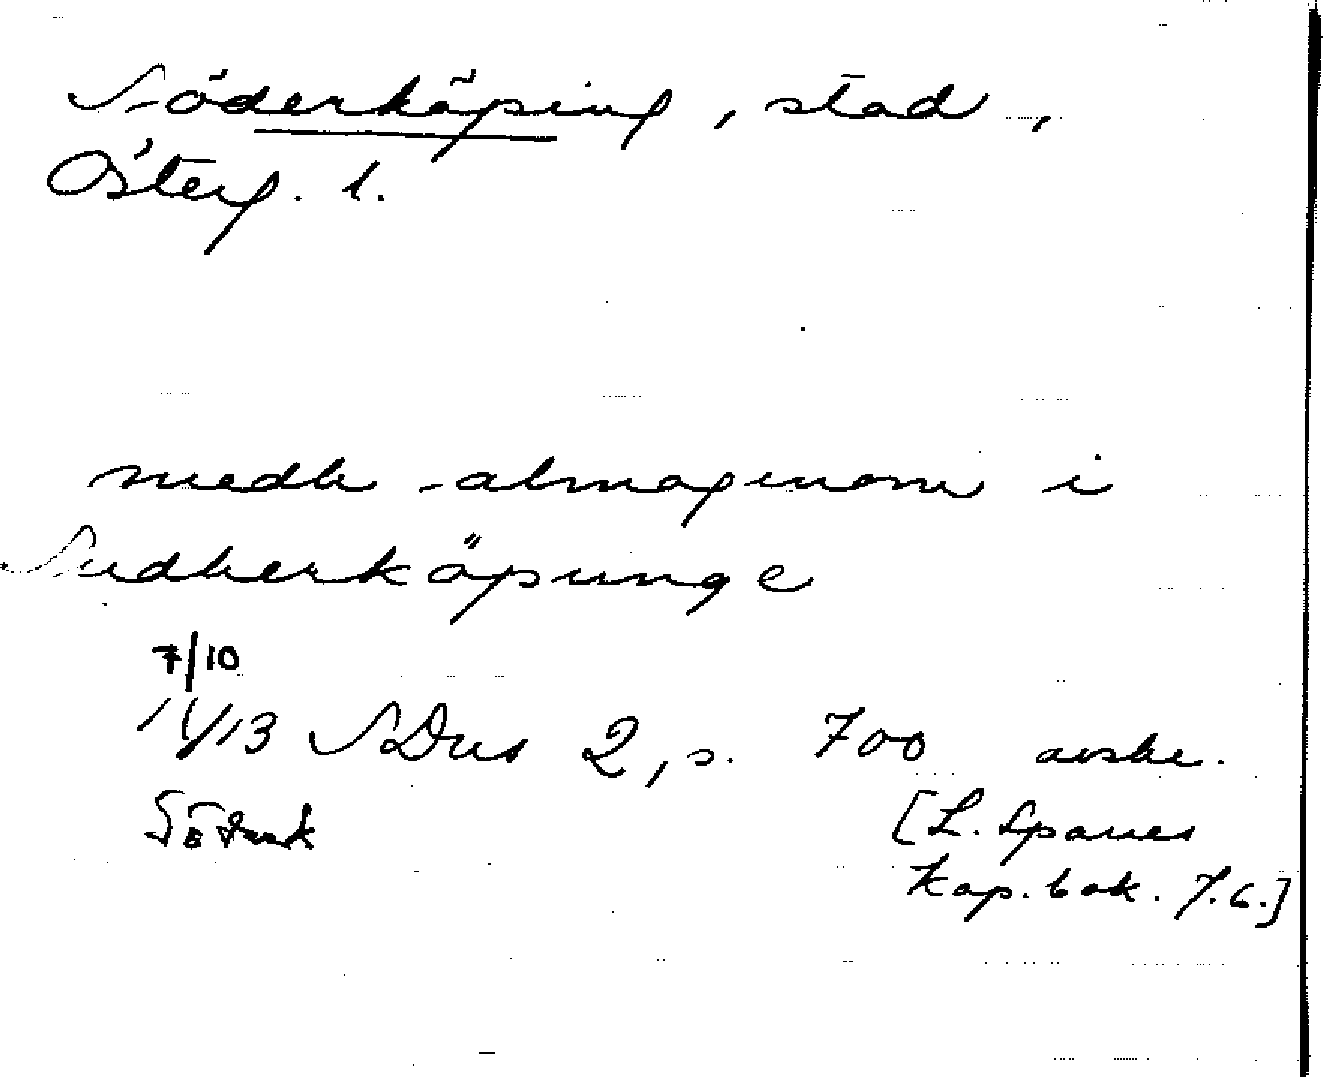 Söderköping, stad,
Österg. l.
medh almogenom i
Sudherköpunge
7/10
1413 SDns 2, s. 700 avskr.
[L. Sparres
Kop.bok. f.6.]